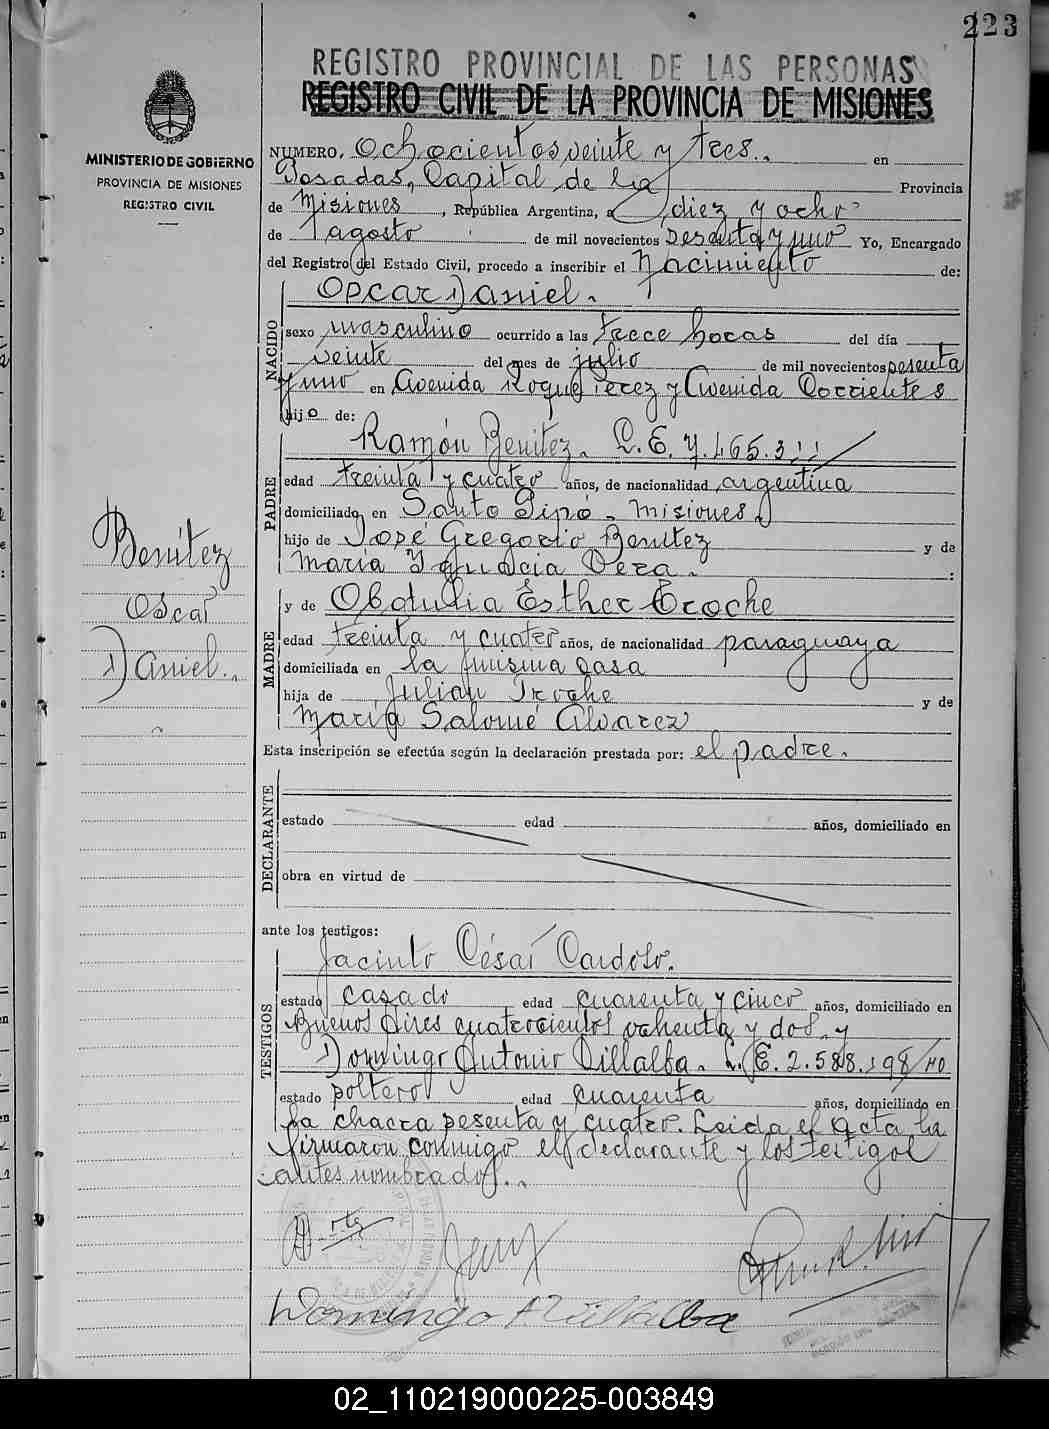 223
REGISTRO PROVINCIAL DE LAS PERSONAS
REGISTRO CIVIL DE LA PROVINCIA DE MISIONES
MINISTERIO DE GOBIERNO
PROVINCIA DE MISIONES
REGISTRO CIVIL
NUMERO. Ochocientos veinte y tres. en
Posadas, Capital de la Provincia
de Misiones, República Argentina, a diez y ocho
de agosto de mil novecientos sesenta y uno Yo, Encargado
del Registro del Estado Civil, procedo a inscribir el Nacimiento de:
NACIDO
Oscar Daniel.
sexo masculino ocurrido a las trece horas del día
veinte del mes de julio de mil novecientos sesenta
y uno en Avenida Roque Perez y Avenida Corrientes
hijo de:
PADRE
Ramón Benitez. L.E. 7.465.3
edad treinta y cuatro años, de nacionalidad argentina
domiciliado en Santo Pipó. Misiones
hijo de José Gregorio Benitez y de
María Ignacia Vera. :
Benítez
Oscar
Daniel.
MADRE
y de Obdulia Esther Troche
edad treinta y cuatro años, de nacionalidad paraguaya
domiciliada en la misma casa
hija de Julian Troche y de
María Salomé Alvarez
Esta inscripción se efectúa según la declaración prestada por: el padre.
DECLARANTE
estado edad años, domiciliado en
obra en virtud de
ante los testigos:
TESTIGOS
Jacinto César Cardoso.
estado casado edad cuarenta y cinco años, domiciliado en
Buenos Aires cuatrocientos ochenta y dos, y
Domingo Antonio Villalba. L.E. 2.588.198/40
estado soltero edad cuarenta años, domiciliado en
la chacra sesenta y cuatro. Leida el acta la
firmaron conmigo el declarante y los testigos
antes nombrados.
Domingo A Villalba
02_110219000225-003849